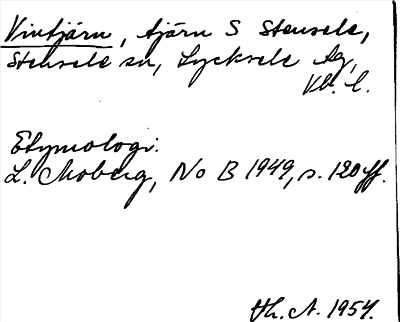 Vintjärn, tjärn S Stensele,
Stensele sn, Lycksele lg,
Vb. l.
Etymologi:
L. Moberg, No B 1949, s. 120 ff.
th. A. 1954.